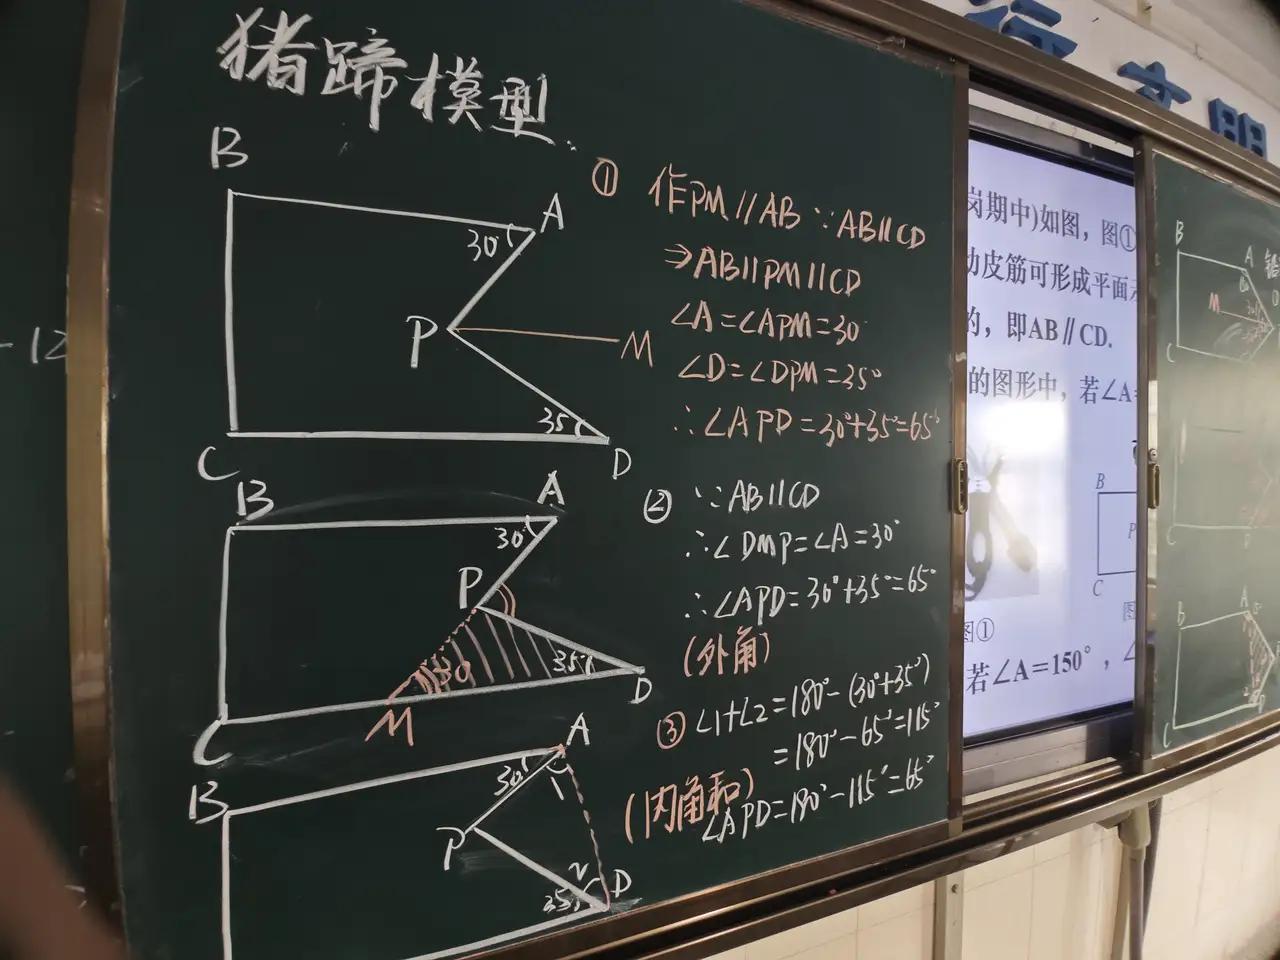 猪蹄模型
B
A
30°
P
M
35°
C
D
① 作PM∥AB ∵AB∥CD
⇒AB∥PM∥CD
∠A=∠APM=30
∠D=∠DPM=35°
∴∠APD=30°+35°=65°
B
A
30°
P
30
35°
D
M
C
② ∵AB∥CD
∴∠DMP=∠A=30°
∴∠APD=30°+35°=65°
(外角)
A
30°
1
B
P
2
35°
D
③ ∠1+∠2=180°-(30°+35°)
=180°-65°=115°
(内角和)
∠APD=180°-115°=65°
-12
明
岗期中)如图，图①
动皮筋可形成平面示
的，即AB∥CD.
的图形中，若∠A=
B
P
C
图
图①
若∠A=150°，∠
B
A
M
C
B
A
C
D